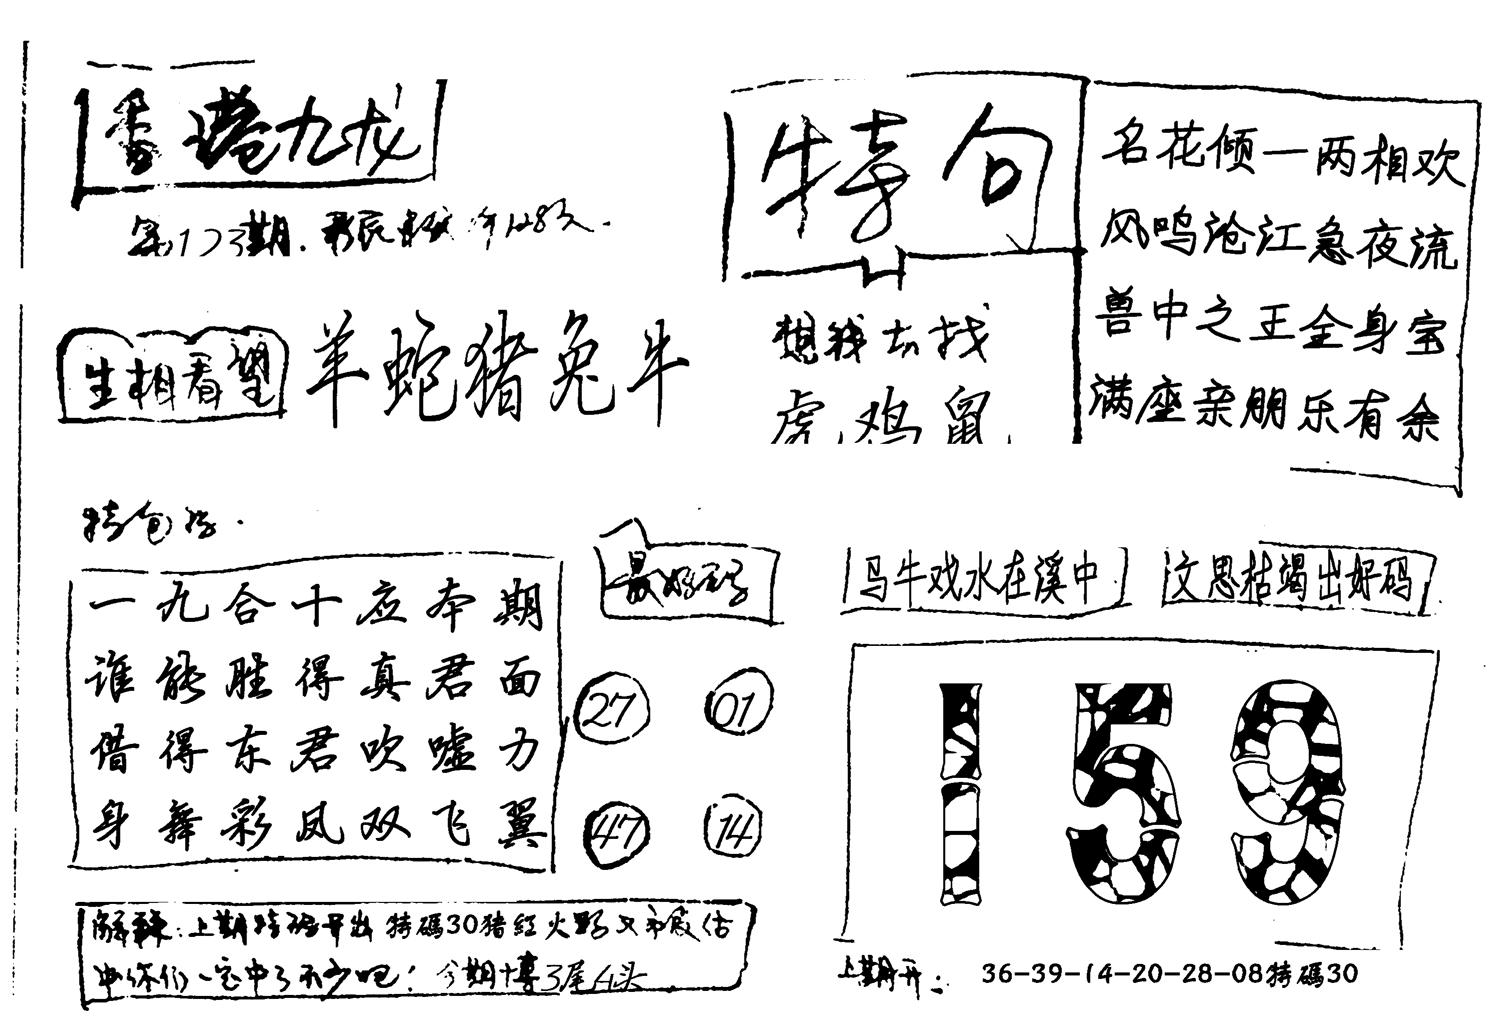 香港九龙
第123期.
生相看望
羊蛇猪兔牛
特句
想我去找
虎鸡鼠
名花倾一两相欢
风鸣沧江急夜流
兽中之王全身宝
满座亲朋乐有余
特包
一九合十应本期
谁能胜得真君面
借得东君吹嘘力
身舞彩凤双飞翼
最好
27 01
47 14
马牛戏水在溪中
文思枯竭出好码
159
解: 上期特码开出 特碼30猪红火
你们一定中了不少吧! 今期博3尾4头
上期开: 36-39-14-20-28-08特碼30